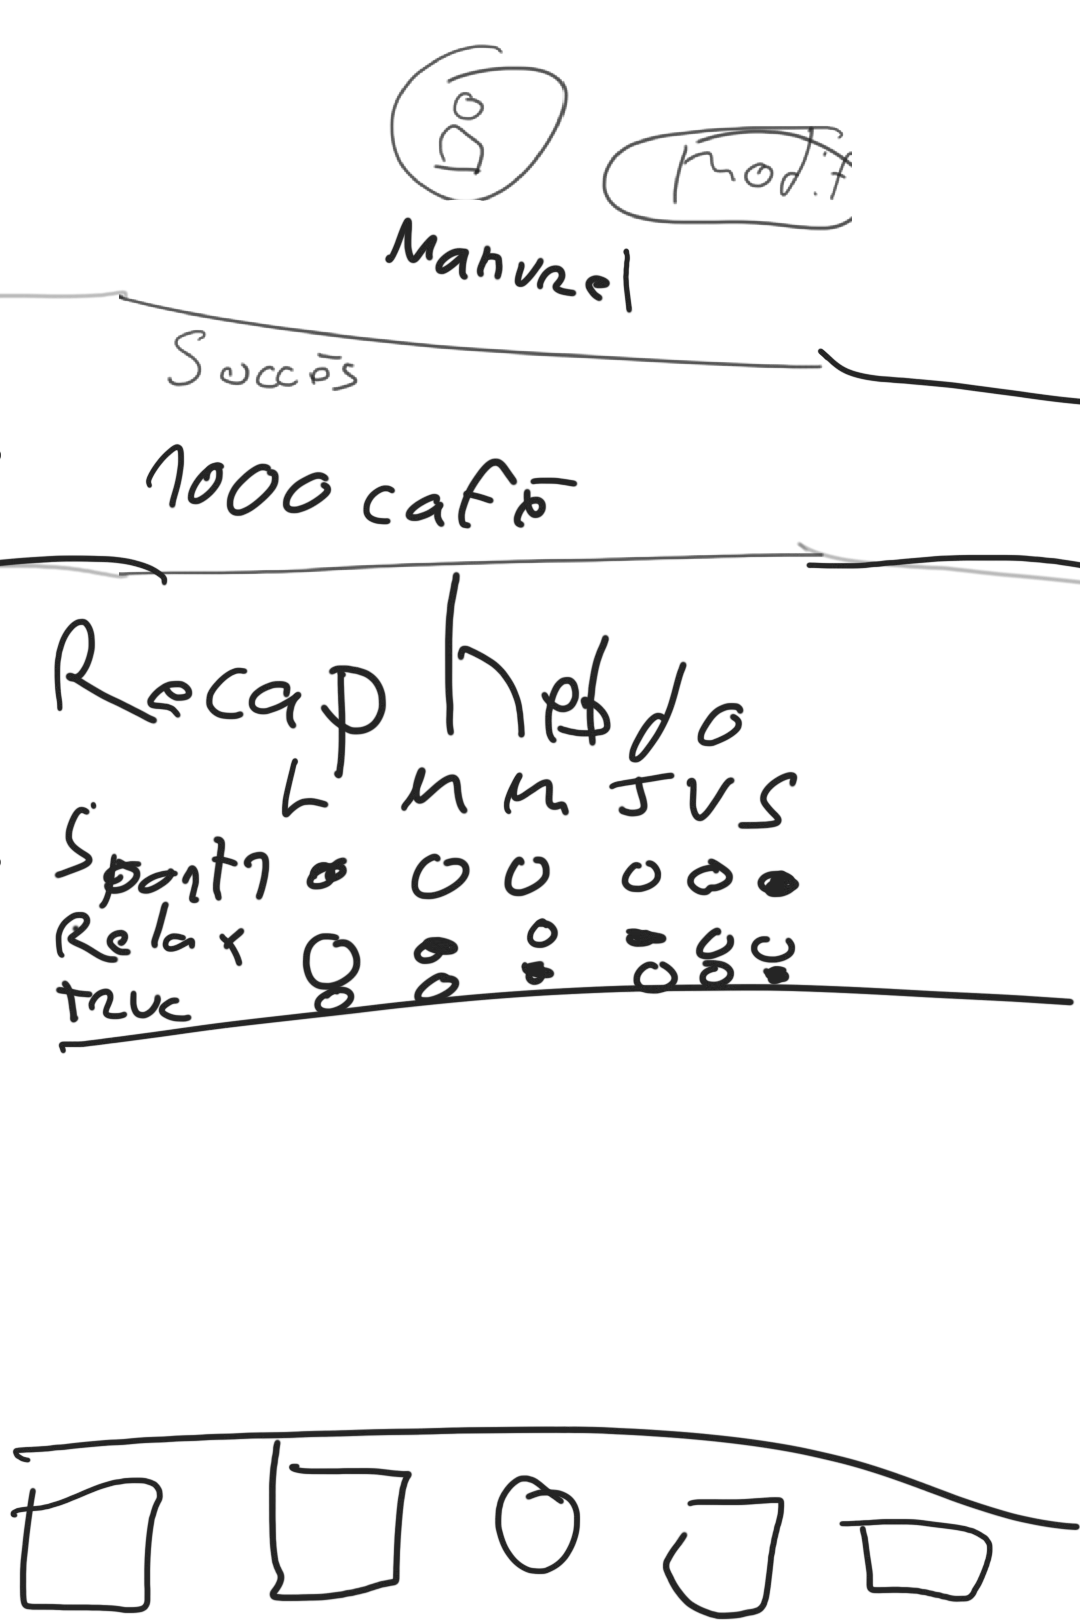 modif
Manuel
Succès
1000 café
Recap hebdo
L M M J V S
Sport
Relax
truc